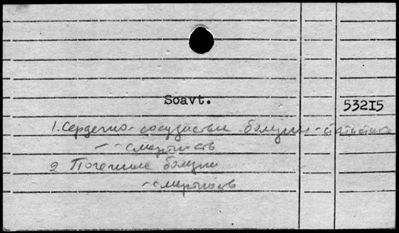 Soavt.
53215
1. Сердечно-сосудистые болезни - статистика
— " — смертность
2 Почечные болезни
— смертность